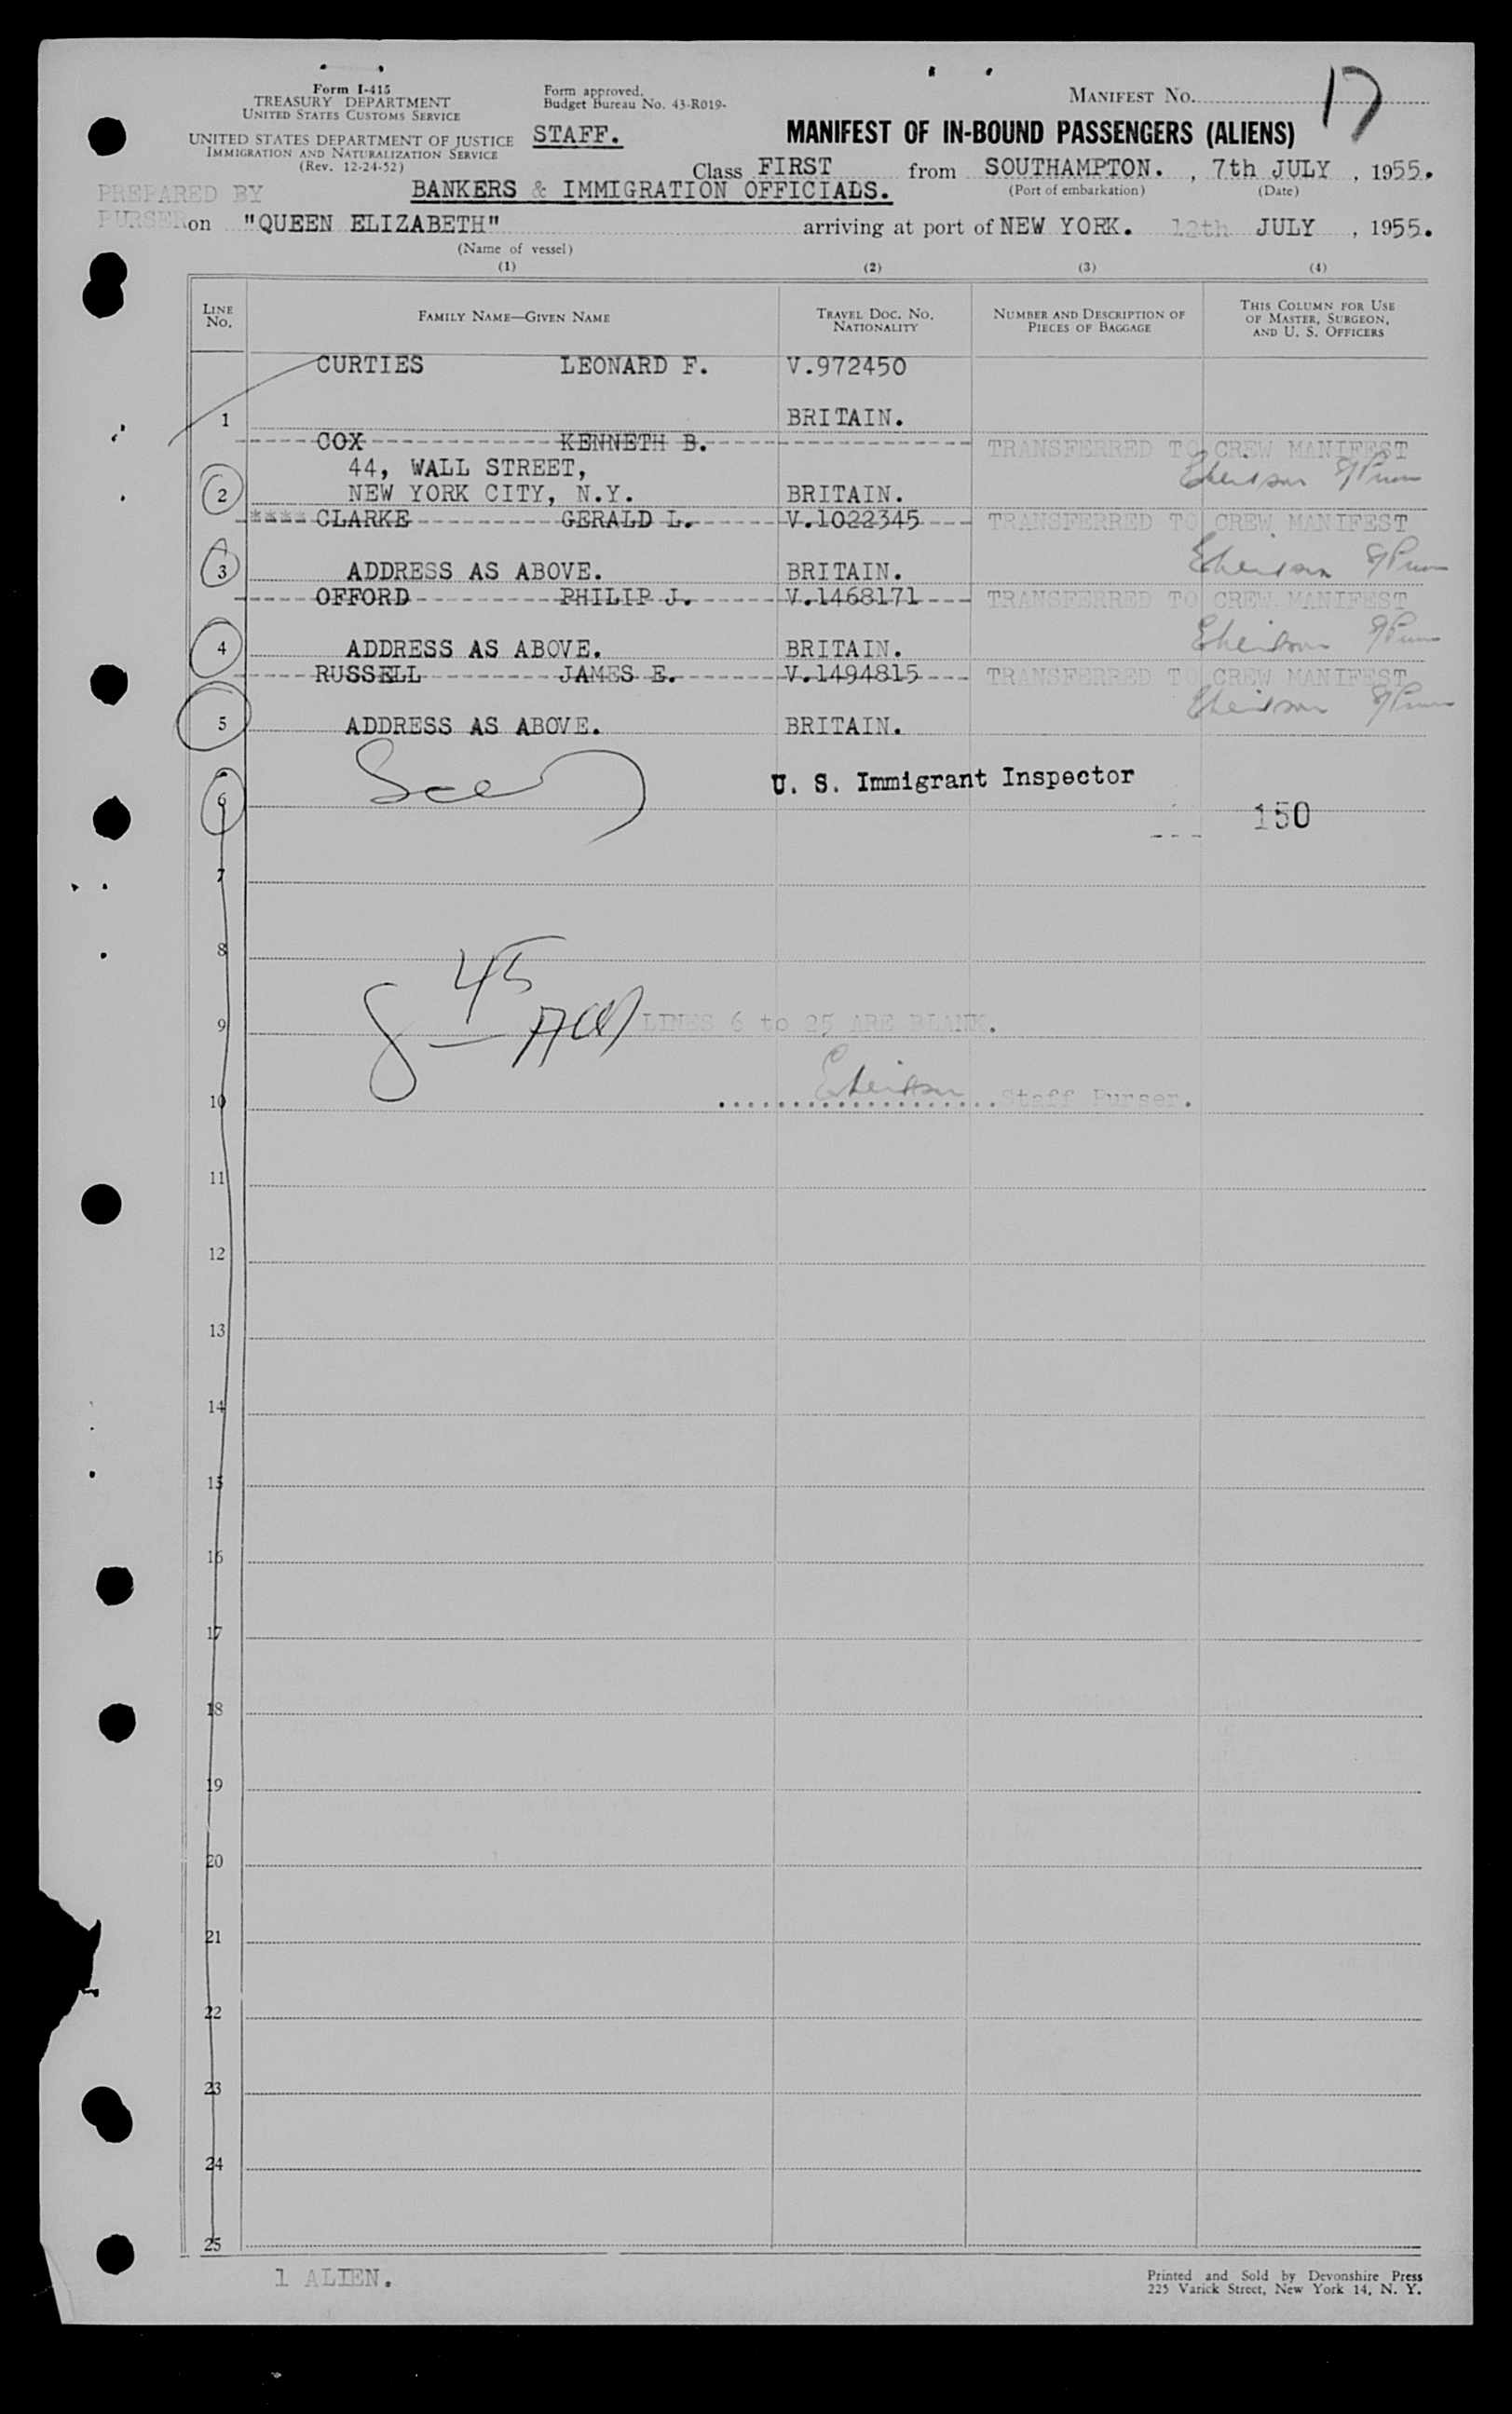 Form I-415
TREASURY DEPARTMENT
UNITED STATES CUSTOMS SERVICE
UNITED STATES DEPARTMENT OF JUSTICE
IMMIGRATION AND NATURALIZATION SERVICE
(Rev. 12-24-52)
Form approved.
Budget Bureau No. 43-R019-
STAFF.
MANIFEST NO. 17
MANIFEST OF IN-BOUND PASSENGERS (ALIENS)
Class FIRST from SOUTHAMPTON. , 7th JULY , 1955.
(Port of embarkation) (Date)
PREPARED BY
PURSER
BANKERS & IMMIGRATION OFFICIALS.
on "QUEEN ELIZABETH" arriving at port of NEW YORK. 12th JULY , 1955.
(Name of vessel)
(1) (2) (3) (4)
LINE NO. FAMILY NAME—GIVEN NAME TRAVEL DOC. NO. NATIONALITY NUMBER AND DESCRIPTION OF PIECES OF BAGGAGE THIS COLUMN FOR USE OF MASTER, SURGEON, AND U. S. OFFICERS
CURTIES LEONARD F. V.972450
1 BRITAIN.
COX KENNETH B. TRANSFERRED TO CREW MANIFEST
44, WALL STREET,
2 NEW YORK CITY, N.Y. BRITAIN.
**** CLARKE GERALD L. V.1022345 TRANSFERRED TO CREW MANIFEST
3 ADDRESS AS ABOVE. BRITAIN.
OFFORD PHILIP J. V.1468171 TRANSFERRED TO CREW MANIFEST
4 ADDRESS AS ABOVE. BRITAIN.
RUSSELL JAMES E. V.1494815 TRANSFERRED TO CREW MANIFEST
5 ADDRESS AS ABOVE. BRITAIN.
U. S. Immigrant Inspector
6
150
7
8
45
9 LINES 6 to 25 ARE BLANK.
10 Staff Purser.
11
12
13
14
15
16
17
18
19
20
21
22
23
24
25
1 ALIEN.
Printed and Sold by Devonshire Press
225 Varick Street, New York 14, N. Y.